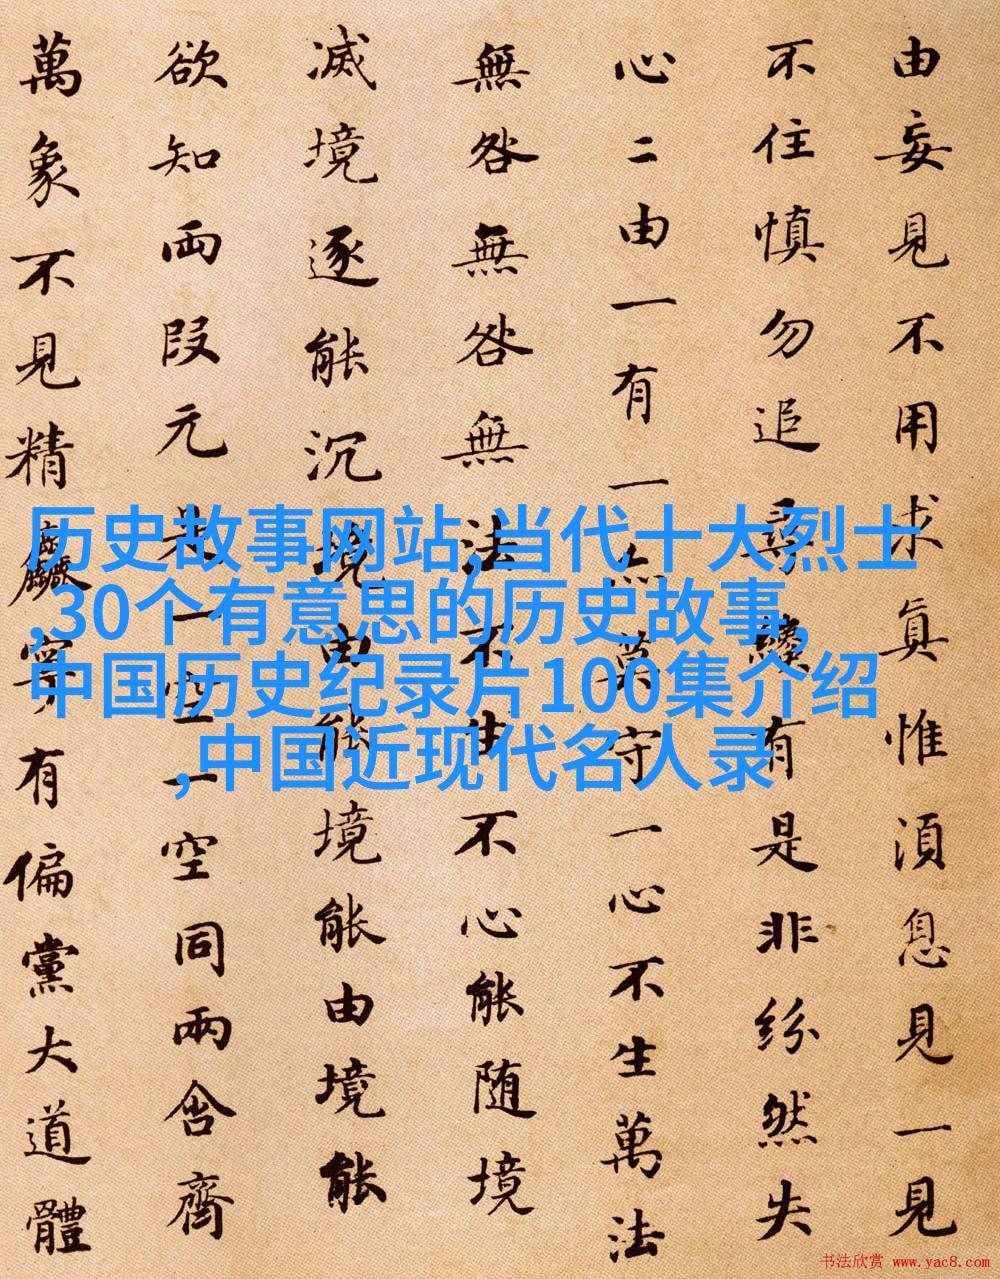 由妄見不用求眞惟湏息見一見
不住慎勿追尋纔有是非紛然失
心二由一有一亦莫守一心不生萬法
無咎無咎無法不生不心能随境
滅境逐能沉境由能境能由境能
欲知兩段元是一空一空同兩含齊
萬象不見精麤寧有偏黨大道體
历史故事网站,当代十大烈士
,30个有意思的历史故事,
中国历史纪录片100集介绍
,中国近现代名人录
书法欣赏 www.yac8.com